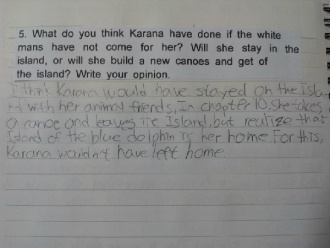 5. What do you think Karana have done if the white
mans have not come for her? Will she stay in the
island, or will she build a new canoes and get of
the island? Write your opinion.
I think Karana would have stayed on the Isla
nd with her animal friends, In chapter 10, she takes
a canoe and leaves the Island, but realize that
Island of the blue dolphin is her home. For this,
Karana wouldn't have left home.